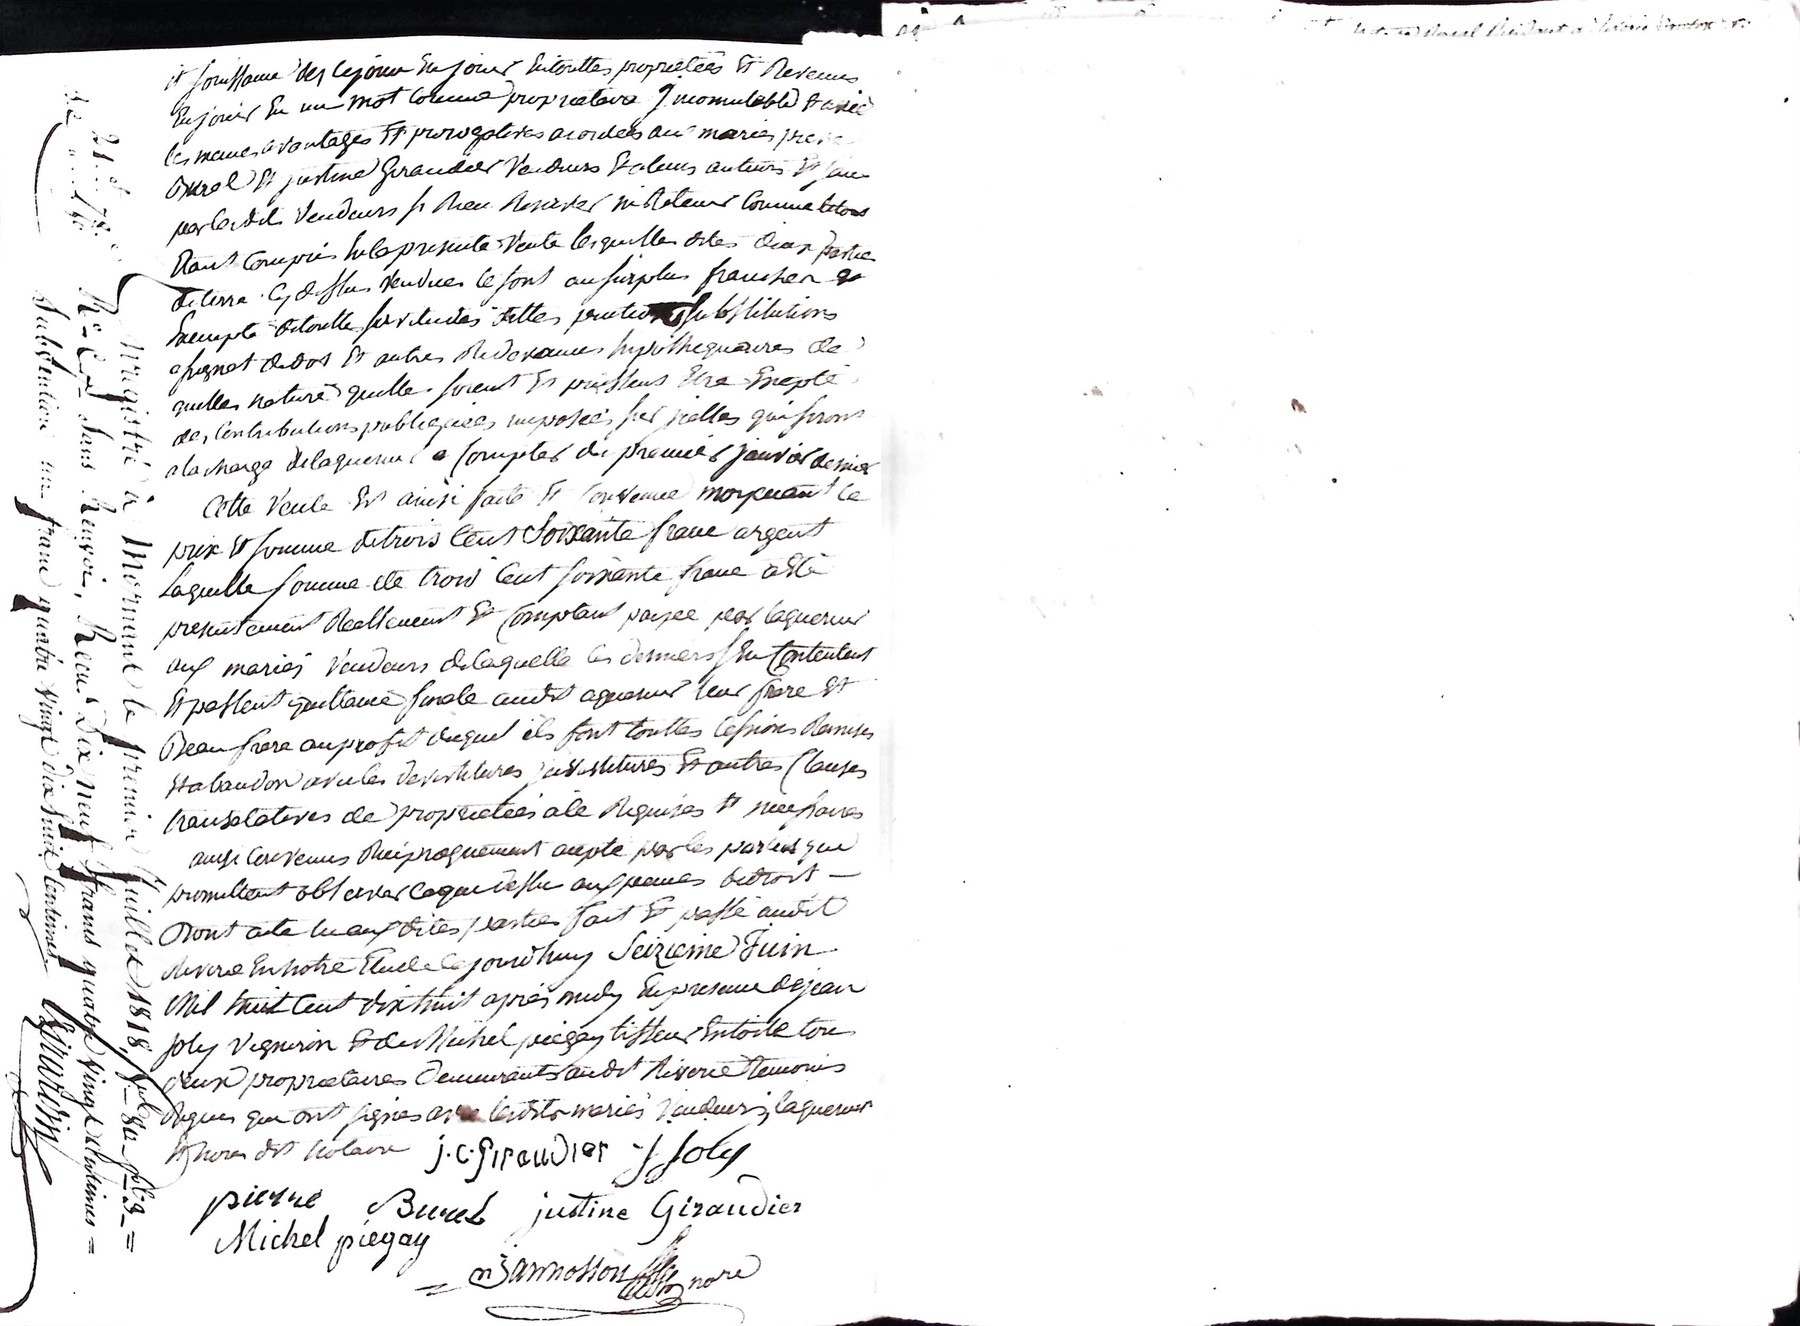 et jouissance des cejour en jouir en touttes proprietées et Revenus
en jouir en un mot comme proprietaire Jncomutable & avec
les memes avantages et prerogatives acordées aux mariés pierre
Burel et justine Giraudier Vendeurs et a leurs auteurs et sans
par lesdit Vendeurs sy Rien Reserver ni Retenir comme le tout
Etant compris En la presente vente lesquelles dites deux partie
de terre cy dessus vendues le sont au surplus franches &
Exempte de toutte servitudes dettes substitutions
asignat de dot et autres Redevances hypothequaires de
quelles nature quelles soient et puissent Etre Exepté
des Contributions publiquées imposées sur jcelles qui seront
a la charge de laquereur a Compter du premier janvier dernier
Cette Vente est ainsi faite et convenue moyenant le
prix et somme de trois Cent Soixante franc argent
Laquelle somme de trois Cent soixante franc a Eté
presentement Reellement et Comptant payée par laquereur
aux mariés Vendeurs de laquelle ces derniers s'En Contentent
Et passent quittance finale audit aquereur leur frere et
Beau frere au profit duquel ils font touttes Cessions Remises
et abandon avec les devestitures jnvestitures et autres Clauses
translatives de proprietées a ce Requises et necessaires
ainsi Convenus Reciproquement acepté par les parties qui
promettent observer ce que dessus aux peines de droit —
Dont acte lu aux dites parties fait et passé audit
Riverie En notre Etude Cejourd'huy Seizieme Juin
Mil huit Cent dix huit après midy En presence de jean
Joly Vigneron et de Michel piegay tisseur En toile tous
deux proprietaires demeurants audit Riverie temoins
Requis qui ont signés avec lesdits mariés Vendeurs, laquereur
et nous dit notaire j.c. Giraudier J Joly
pierre Burel justine Giraudier
Michel piegay
Jannosson nore
Enregistré à Mornant le premier Juillet 1818, fol. 80
Re Ce 2 Sans Renvoi, Recu Dix neuf francs quatre Vingt centimes =
Subvention un franc quatre vingt dix huit Centimes